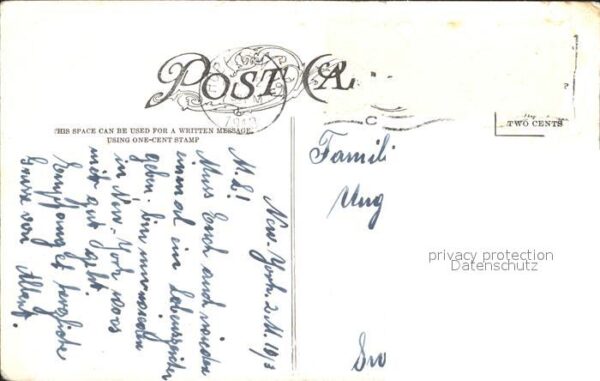 POST CA
THIS SPACE CAN BE USED FOR A WRITTEN MESSAGE,
USING ONE-CENT STAMP
TWO CENTS
New-York. 2.M.
M. L!
Muss Euch auch wieder
einmal ein Lebenszeichen
geben. bin immer
in New-York wos
mir gut geht.
Empfanget herzliche
Grüsse von Albert.
Famili
Ung
privacy protection
Datenschutz